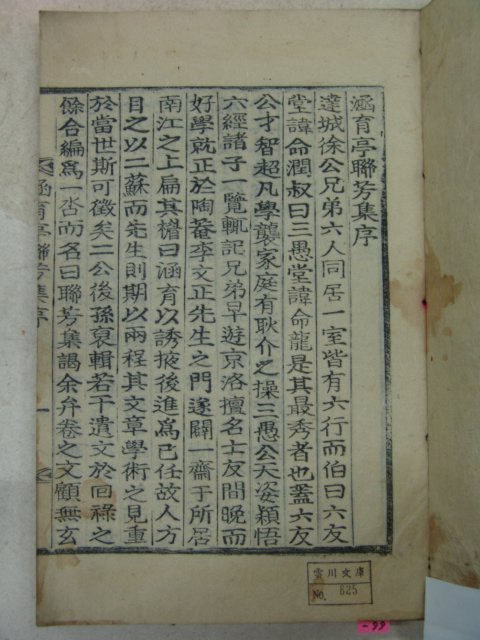 涵育亭聯芳集序
達城徐公兄弟六人同居一室皆有六行而伯曰六友
堂諱命潤叔曰三愚堂諱命龍是其最秀者也蓋六友
公才智超凡學襲家庭有耿介之操三愚公天姿穎悟
六經諸子一覽輒記兄弟早遊京洛擅名士友間晩而
好學就正於陶菴李文正先生之門遂闢一齋于所居
南江之上扁其楣曰涵育以誘掖後進爲己任故人方
目之以二蘇而先生則期以兩程其文章學術之見重
於當世斯可徵矣二公後孫裒輯若干遺文於回祿之
餘合編爲一呇而名曰聯芳集謁余弁卷之文顧無玄
涵育亭聯芳集序
一
雲川文庫
No. 825
-99